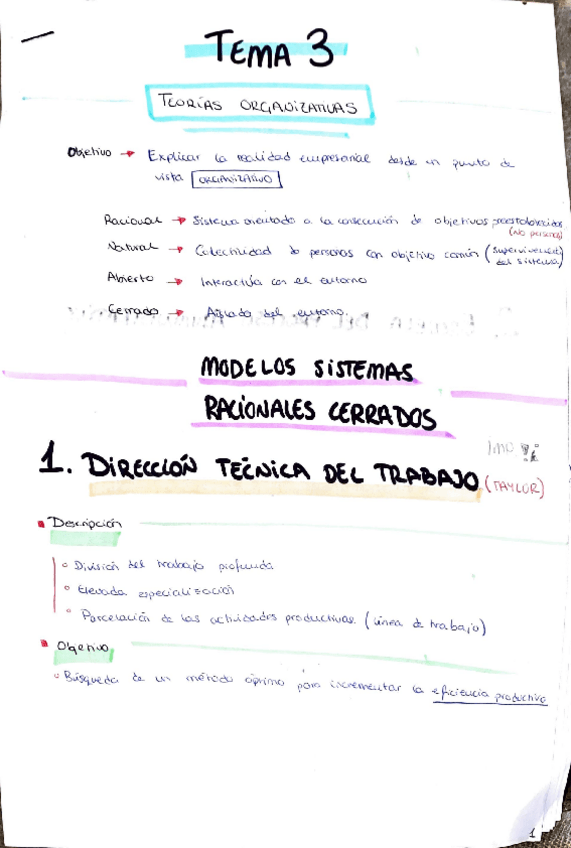 TEMA 3
TEORÍAS ORGANIZATIVAS
Objetivo → Explicar la realidad empresarial desde un punto de
vista ORGANIZATIVO
Racional → Sistema orientado a la consecución de objetivos preestablecidos
(No personas)
Natural → Colectividad de personas con objetivo común (supervivencia
del sistema)
Abierto → Interactúa con el entorno
Cerrado → Aislado del entorno.
MODELOS SISTEMAS
RACIONALES CERRADOS
1. DIRECCIÓN TÉCNICA DEL TRABAJO (TAYLOR)
Descripción
División del trabajo profunda
Elevada especialización
Parcelación de las actividades productivas. (línea de trabajo)
Objetivo
Búsqueda de un método óptimo para incrementar la eficiencia productiva
1